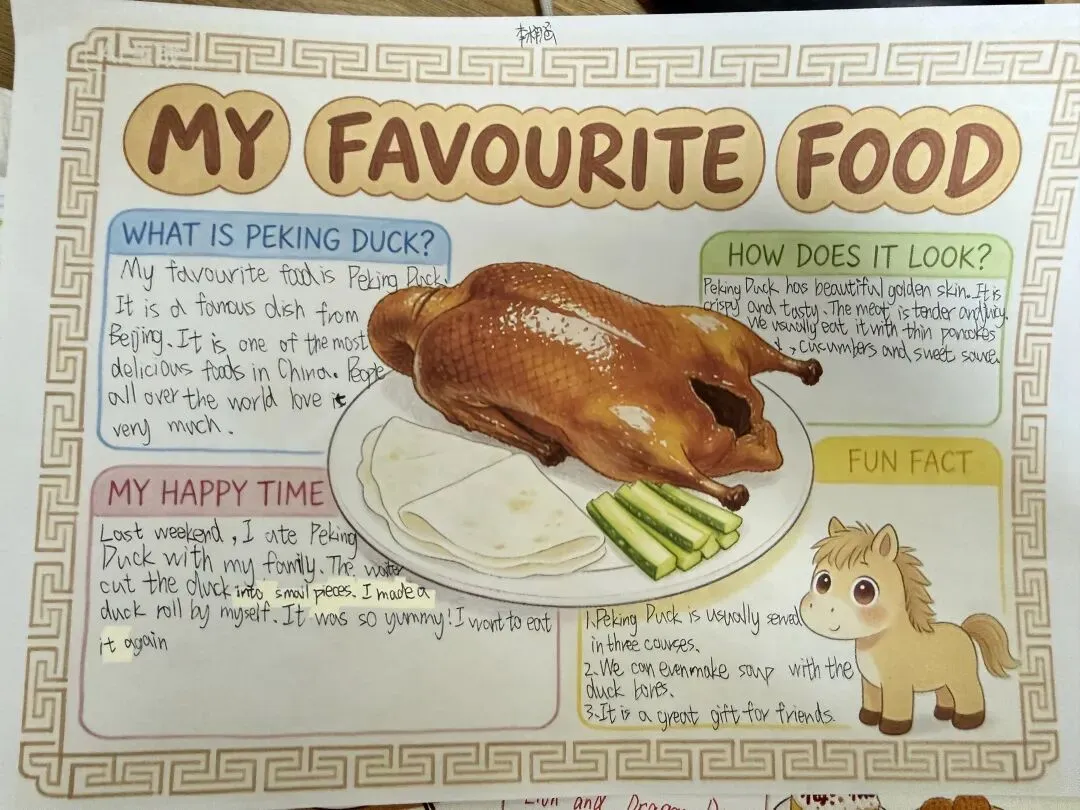 MY FAVOURITE FOOD
WHAT IS PEKING DUCK?
My favourite food is Peking Duck.
It is a famous dish from
Beijing. It is one of the most
delicious foods in China. People
all over the world love it
very much.
HOW DOES IT LOOK?
Peking Duck has beautiful golden skin. It is
crispy and tasty. The meat is tender and juicy.
We usually eat it with thin pancakes
, cucumbers and sweet sauce.
MY HAPPY TIME
Last weekend, I ate Peking
Duck with my family. The waiter
cut the duck into small pieces. I made a
duck roll by myself. It was so yummy! I want to eat
it again
FUN FACT
1.Peking Duck is usually served
in three courses.
2.We can even make soup with the
duck bones.
3.It is a great gift for friends.
Lion and Dragon D